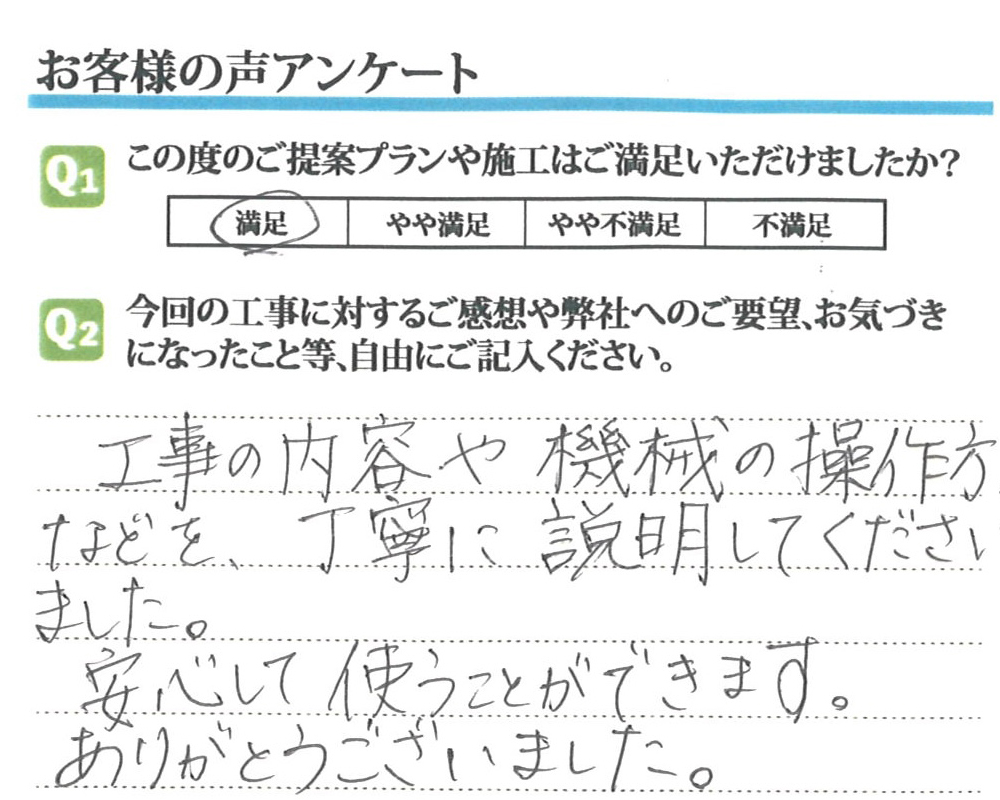 お客様の声アンケート
Q1 この度のご提案プランや施工はご満足いただけましたか?
満足 やや満足 やや不満足 不満足
Q2 今回の工事に対するご感想や弊社へのご要望、お気づき
になったこと等、自由にご記入ください。
工事の内容や機械の操作方
などを、丁寧に説明してください
ました。
安心して使うことができます。
ありがとうございました。